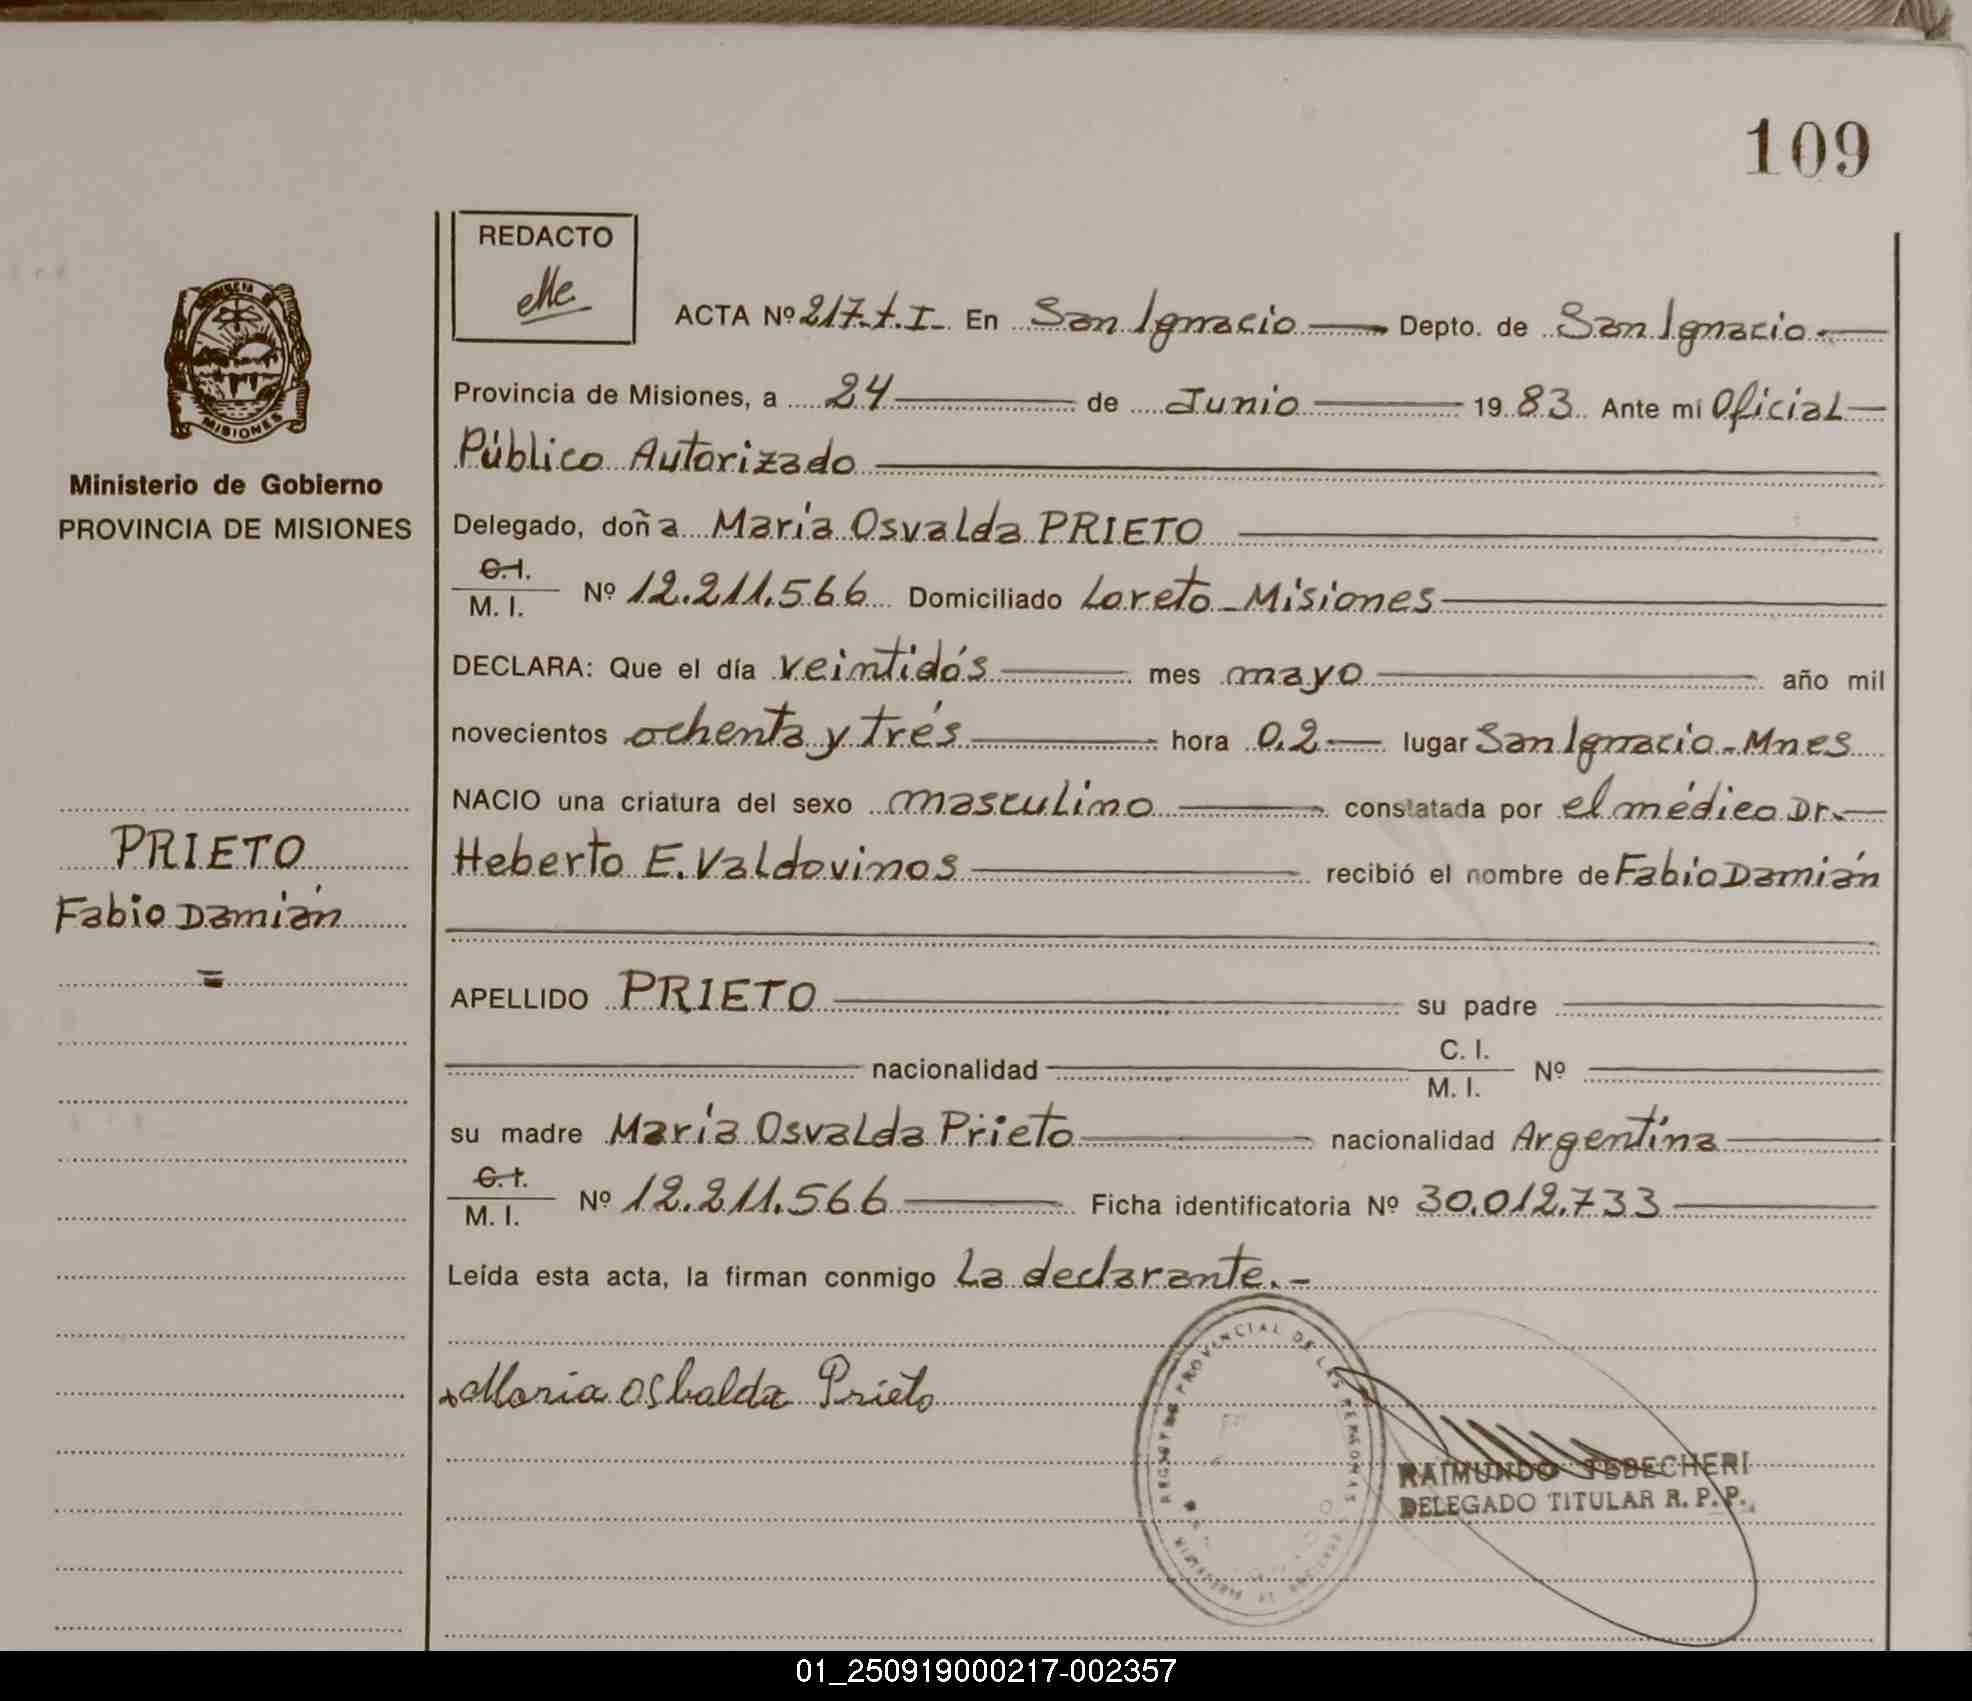 109
REDACTO
ACTA Nº 217.t.I. En San Ignacio Depto. de San Ignacio
Provincia de Misiones, a 24 de Junio 1983 Ante mi Oficial
Público Autorizado
MISIONES
Ministerio de Gobierno
PROVINCIA DE MISIONES
Delegado, doña María Osvalda PRIETO
C.I.
M. I. Nº 12.211.566 Domiciliado Loreto-Misiones
DECLARA: Que el día veintidós mes mayo año mil
novecientos ochenta y trés hora 0,2 lugar San Ignacio-Mnes
NACIO una criatura del sexo masculino constatada por el médico Dr.
Heberto E. Valdovinos recibió el nombre de Fabio Damián
PRIETO
Fabio Damián
APELLIDO PRIETO su padre
nacionalidad C. I.
M. I. Nº
su madre María Osvalda Prieto nacionalidad Argentína
C.I.
M. I. Nº 12.211.566 Ficha identificatoria Nº 30.012.733
Leída esta acta, la firman conmigo La declarante.-
Maria Osbalda Prieto
REGISTRO PROVINCIAL DE LAS PERSONAS
RAIMUNDO TEBECHERI
DELEGADO TITULAR R. P. P.
01_250919000217-002357